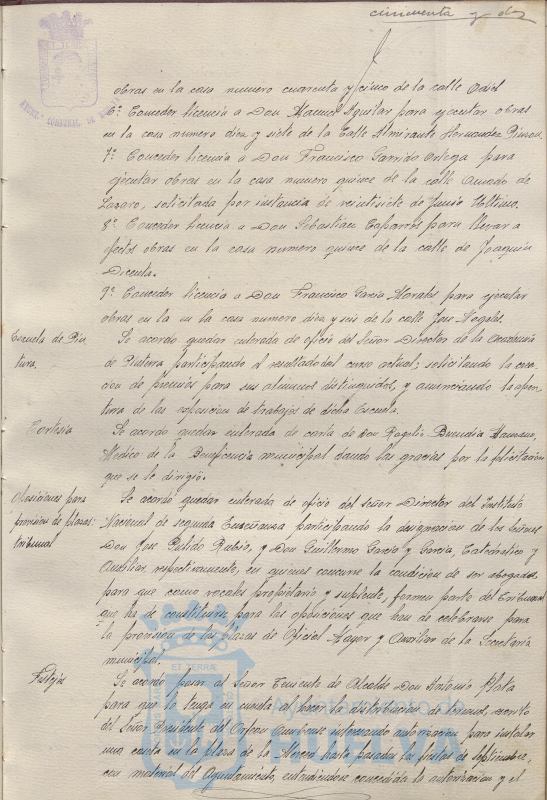 cincuenta y dos
obras en la casa numero cuarenta y cinco de la calle
6º Conceder licencia a Don Manuel Aguilar para ejecutar obras
en la casa numero diez y siete de la Calle Almirante Hernandez Pinzon.
7º Conceder licencia a Don Francisco Garrido Ortega para
ejecutar obras en la casa numero quince de la calle Amado de
Lazaro, solicitada por instancia de veintisiete de Junio ultimo.
8º Conceder licencia a Don Sebastian Caparros para llevar a
efectos obras en la casa numero quince de la calle de Joaquin
Dicenta.
9º Conceder licencia a Don Francisco Garcia Morales para ejecutar
obras en la en la casa numero diez y seis de la calle Jose Nogales.
Escuela de Pin
tura.
Se acordo quedar enterada de oficio del Señor Director de la Academia
de Pintura participando el resultado del curso actual; solicitando la
de premios para sus alumnos distinguidos, y anunciando la aper
tura de las exposicion de trabajos de dicha Escuela.
Cortesia
Se acordo quedar enterada de carta de Don Rogelio Buendia Manzano,
Medico de la Beneficencia municipal dando las gracias por la felicitacion
que se le dirigio.
Oposiciones para
provision de plazas:
tribunal
Se acordo quedar enterada de oficio del Señor Director del Instituto
Nacional de segunda Enseñanza participando la designacion de los Señores
Don Jose Pulido Rubio, y Don Guillermo Garcia y Garcia, Catedratico y
Auxiliar respectivamente, en quienes concurre la condicion de ser abogados,
para que como vocales propietario y suplente, formen parte del Tribunal
que ha de constituirse para las oposiciones que han de celebrarse para
la provision de las plazas de Oficial Mayor y Auxiliar de la Secretaria
municipal.
Festejos
Se acordo pasar al Señor Teniente de Alcalde Don Antonio Plata
para que lo tenga en cuenta al hacer la distribucion de terrenos, escrito
del Señor Presidente del Orfeon Onubense interesando autorizacion para instalar
una caseta en la plaza de la Merced hasta pasadas las fiestas de Septiembre,
con material del Ayuntamiento, entendiendose concedida la autorizacion y el